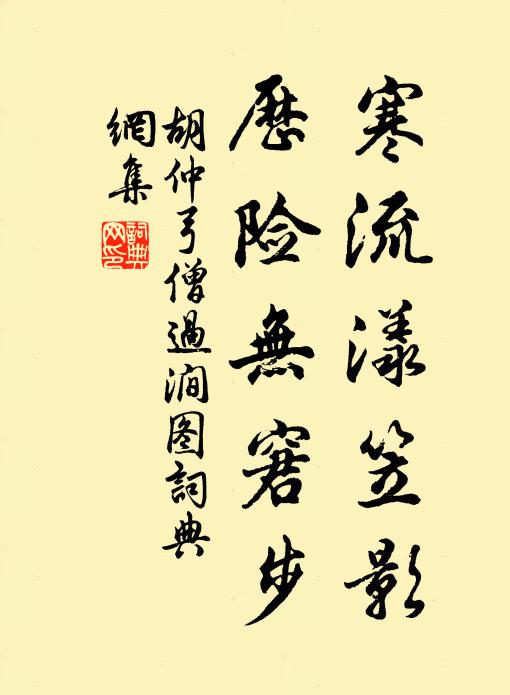 寒流漾笠影
歷险無窘步
胡仲弓僧過澗图詞典
網集
詞典网印